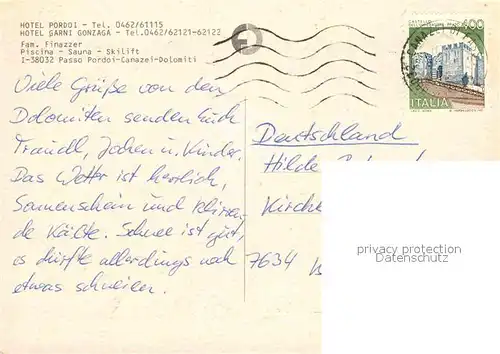 HOTEL PORDOI - Tel. 0462/61115
HOTEL GARNI GONZAGA - Tel.0462/62121-62122
Fam. Finazzer
Piscina - Sauna - Skilift
I-38032 Passo Pordoi-Canazei-Dolomiti
Viele Grüße von den
Dolomiten senden Euch
Traudl, Jochen u. Kinder.
Das Wetter ist herrlich,
Sonnenschein und klirren-
de Kälte. Schnee ist gut,
es dürfte allerdings noch
etwas schneien.
600
ITALIA
Deutschland
Hilde
Kirche
7634
privacy protection
Datenschutz